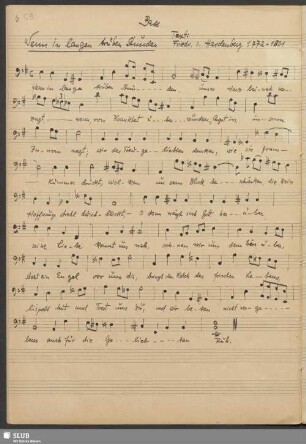 Bass
Wenn in langen trüben Stunden
Text:
Friedr. v. Hardenberg 1772-1801
Wenn in langen trüben Stun--den unser Herz bei-nah ver-
zagt, wenn von Krankheit ü-ber-wunden Angst in unserm
Innern nagt, wir der Treuge-liebten denken, wie sie Gram
Kummer drückt, Wolken unsern Blick be-schränken die kein
Hoffnungsstrahl durchblickt, o dann neigt sich Gott her-über
seine Lie-be kommt uns nah, sehnen wir uns dann hin-über,
steht ein Engel vor uns da, bringt den Kelch des frischen Lebens
lispelt Mut und Trost uns zu, und wir beten nicht verge-
bens auch für die Ge-lieb-ten Ruh.
SLUB
Wir führen Wissen.